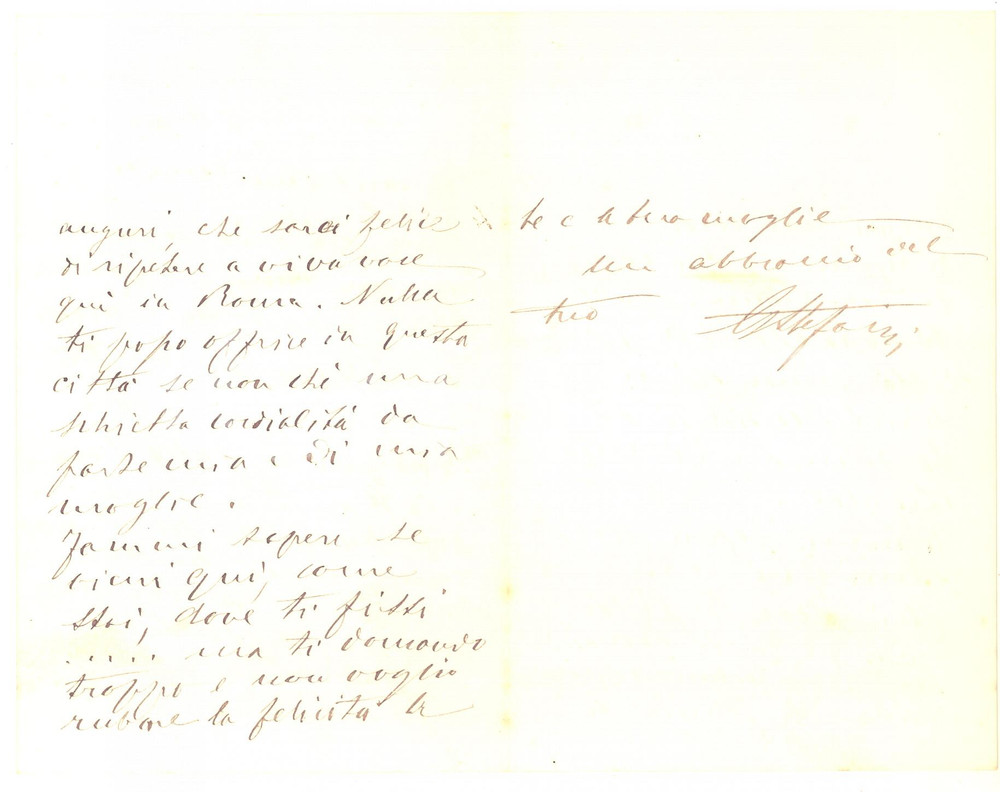 auguri, che sarei felice
di ripetere a viva voce
qui in Roma. Nulla
ti posso offrire in questa
città se non chè una
schietta cordialità da
parte mia e di mia
moglie.
Fammi sapere se
vieni qui, come
stai, dove ti fissi
..... ma ti domando
troppo e non voglio
rubare la felicità
te e a tua moglie
un abbraccio del
tuo Stefani